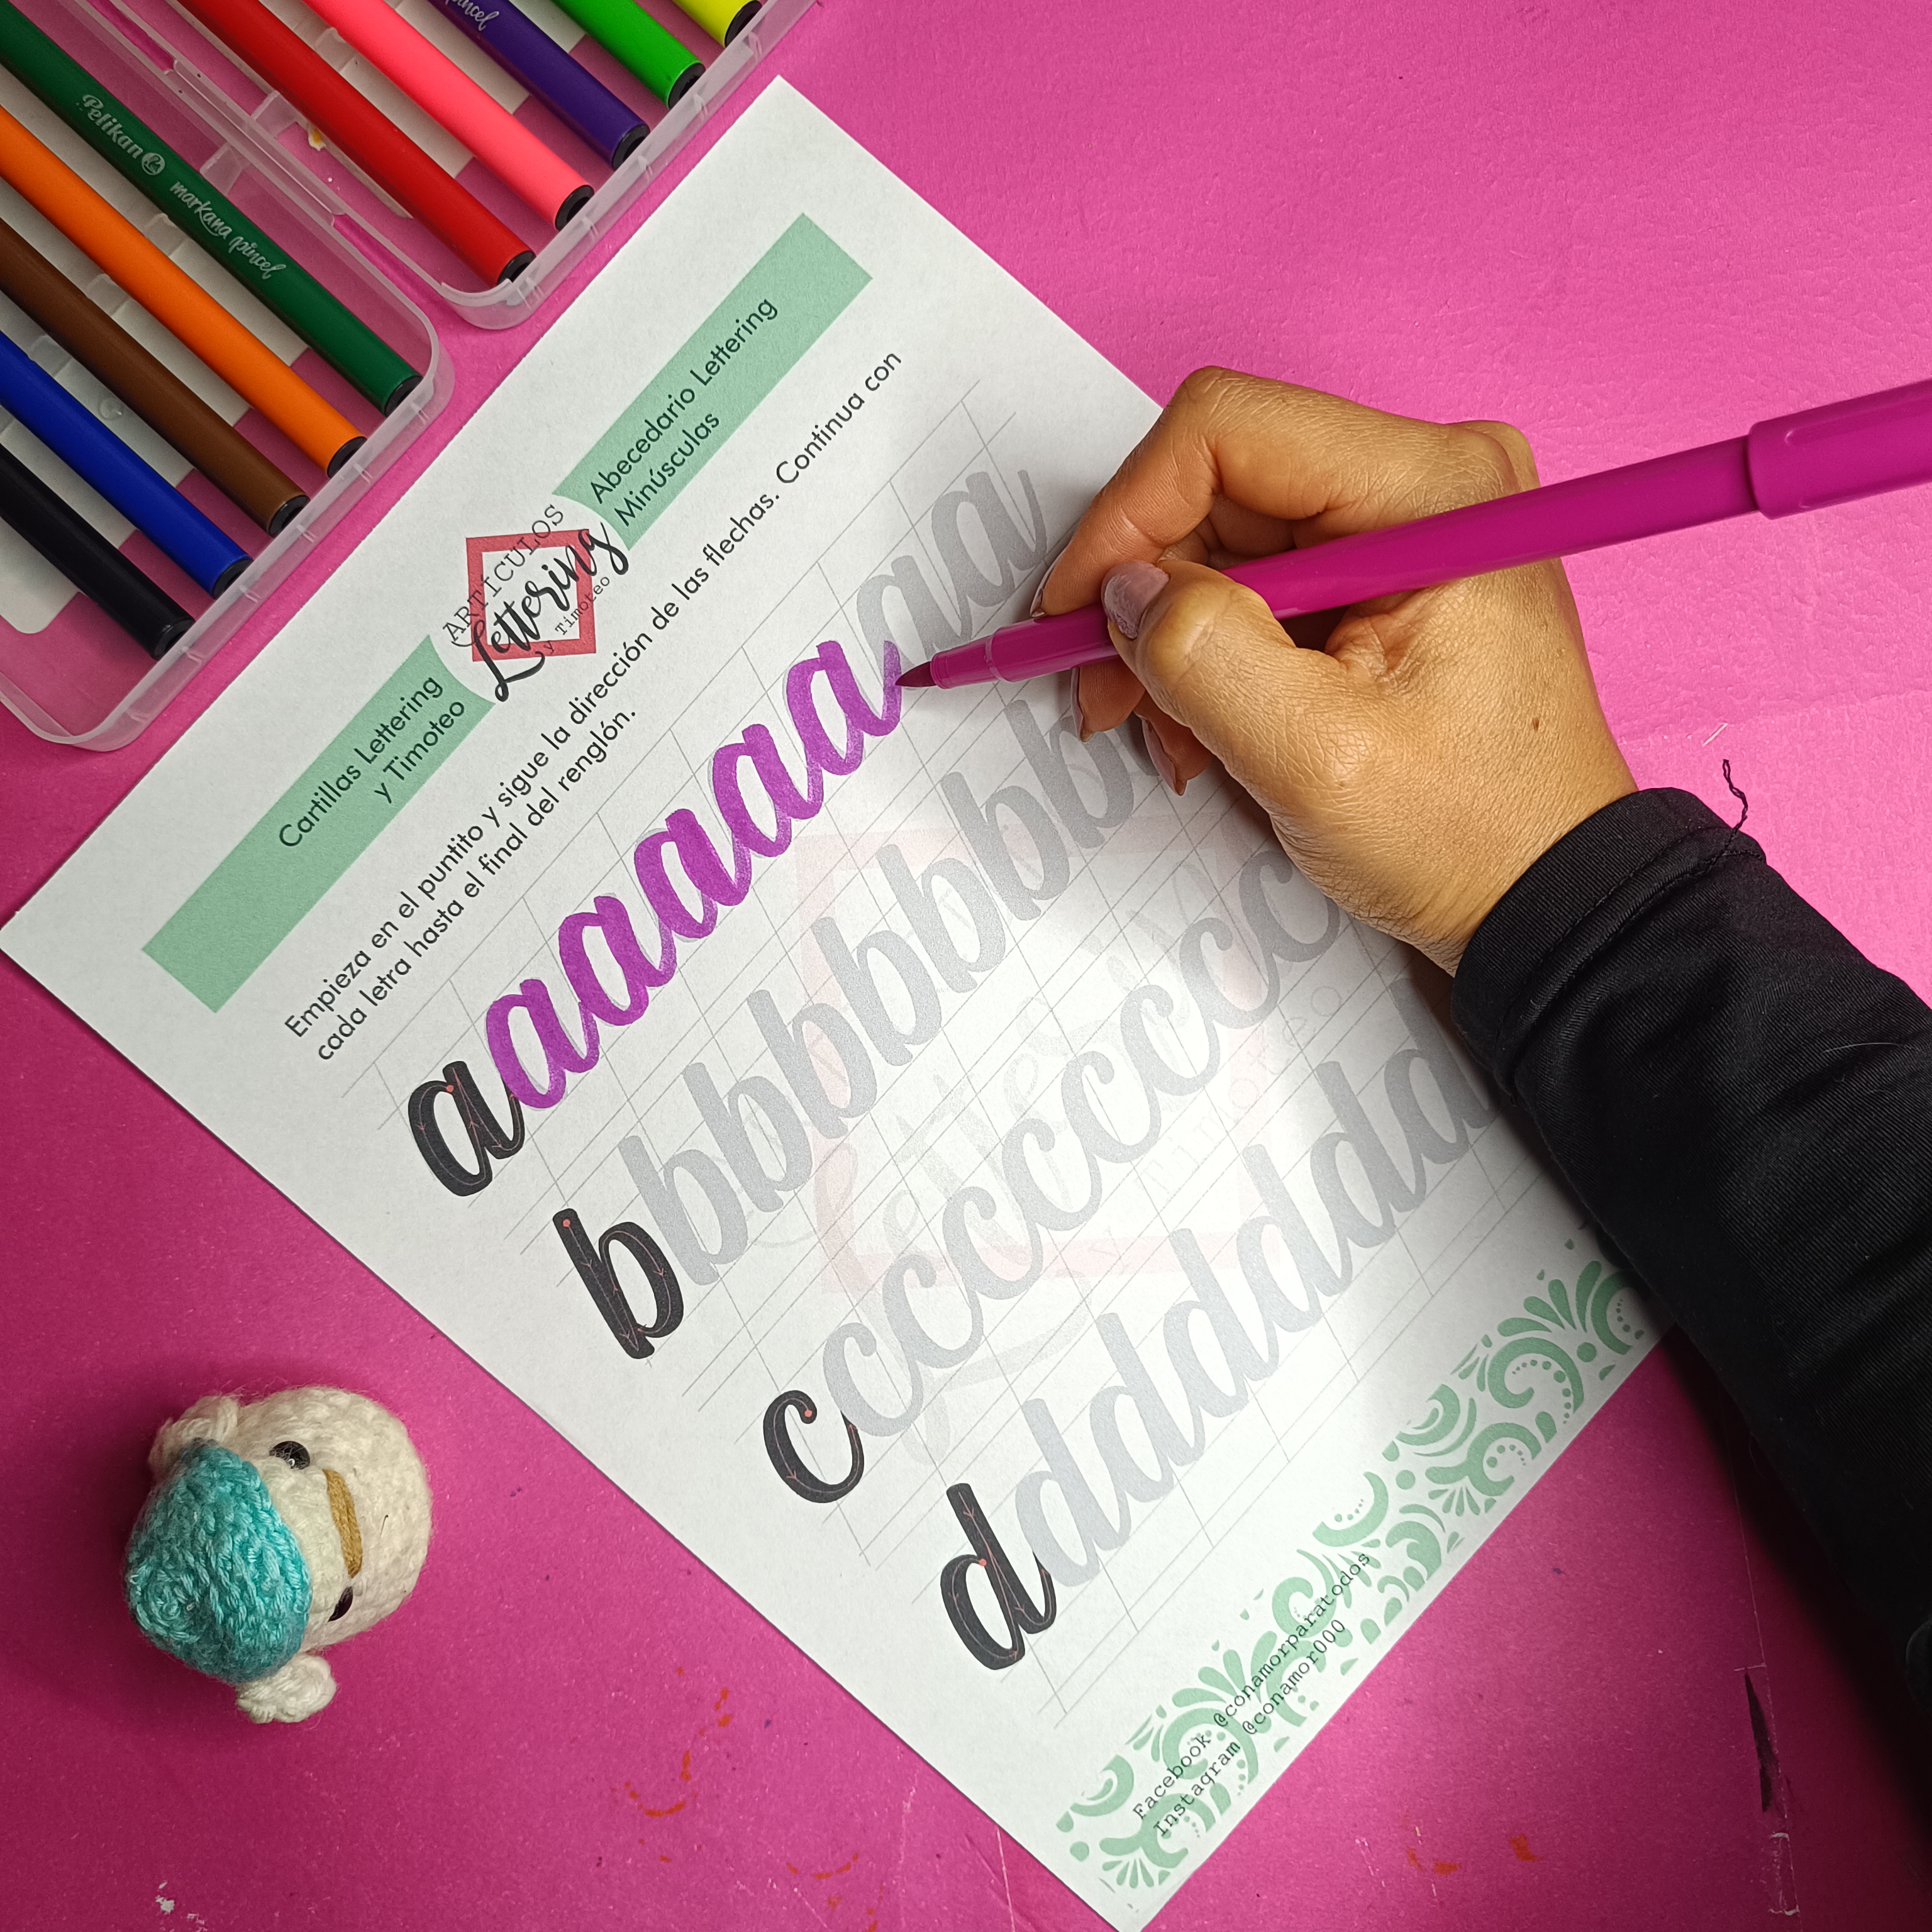 Pelikan
markana pincel
pincel
Cartillas Lettering
y Timoteo
ARTICULOS
Lettering
y Timoteo
Abecedario Lettering
Minúsculas
Empieza en el puntito y sigue la dirección de las flechas. Continua con
cada letra hasta el final del renglón.
aaaaaaaa
bbbbbbbb
cccccccc
ddddddd
Facebook @conamorparatodos
Instagram @conamor000